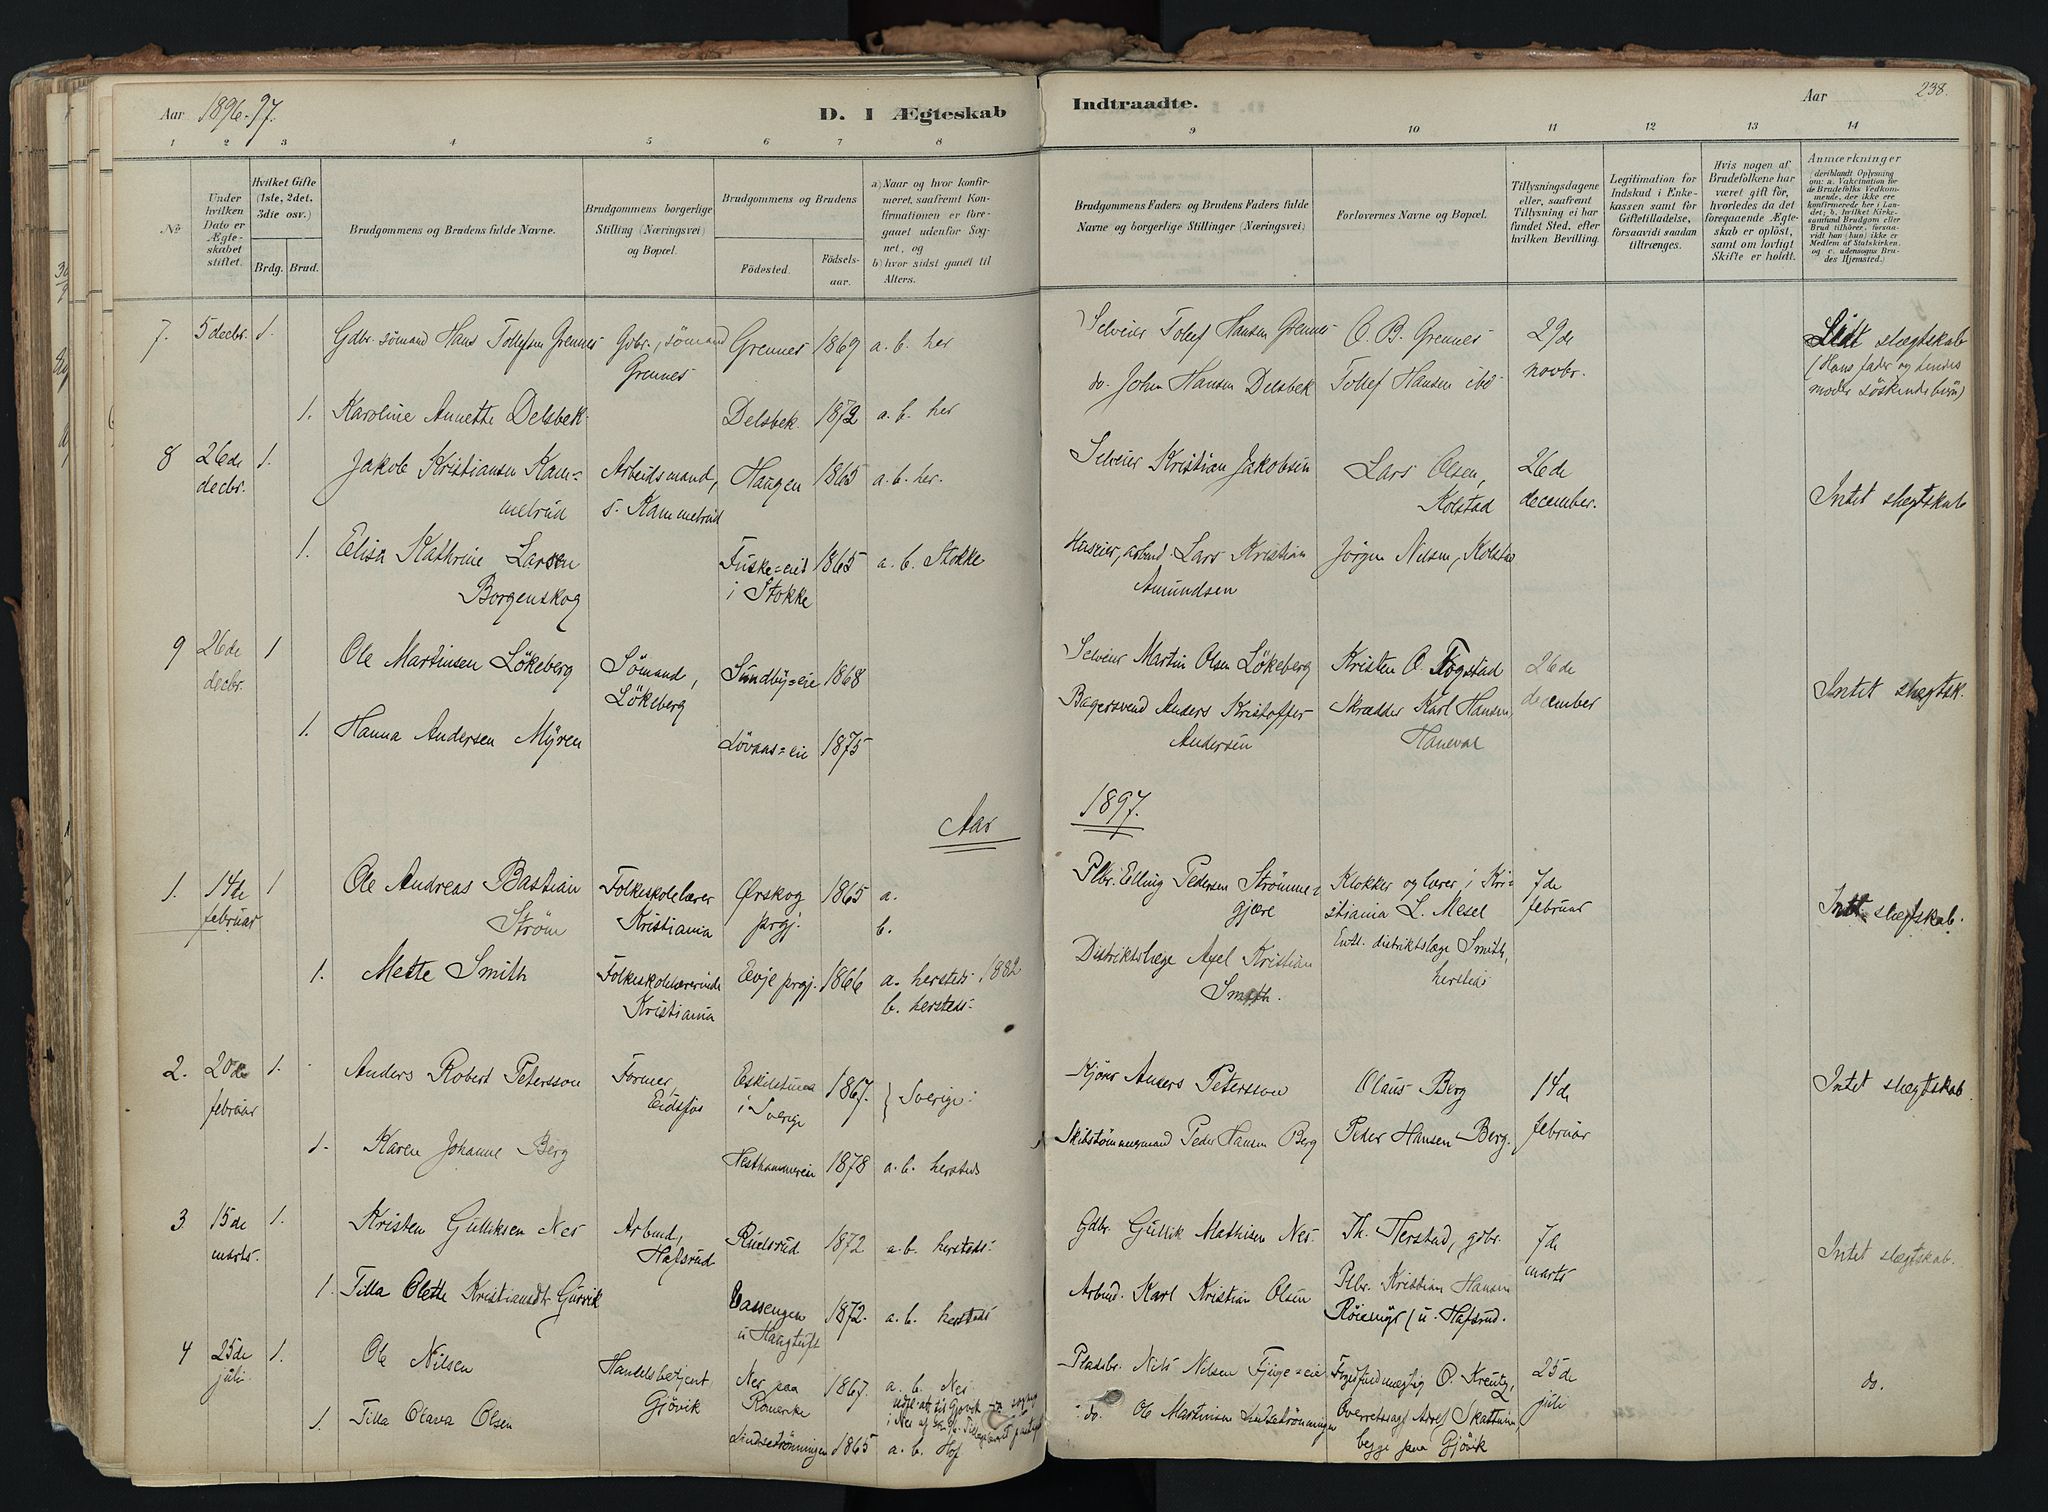 Aar 1896-97.
D. I Ægteskab
Indtraadte.
Aar
238.
1 2 3 4 5 6 7 8 9 10 11 12 13 14
No
Under hvilken Dato er Ægteskabet stiftet.
Hvilket Gifte (1ste, 2det, 3die osv.)
Brdg. Brud.
Brudgommens og Brudens fulde Navne.
Brudgommens borgerlige Stilling (Næringsvei) og Bopæl.
Brudgommens og Brudens
Födested.
Födselsaar.
a) Naar og hvor konfirmeret, saafremt Konfirmationen er foregaaet udenfor Sognet, og
b) hvor sidst gaaet til Alters.
Brudgommens Faders og Brudens Faders fulde Navne og borgerlige Stillinger (Næringsvei)
Forlovernes Navne og Bopæl.
Tillysningsdagene eller, saafremt Tillysning ei har fundet Sted, efter hvilken Bevilling.
Legitimation for Indskud i Enkekassen samt for Giftetilladelse, forsaavidt saadan tiltrænges.
Hvis nogen af Brudefolkene har været gift för, hvorledes da det foregaaende Ægteskab er oplöst, samt om lovligt Skifte er holdt.
Anmærkninger (deriblandt Oplysning om: a. Vakcination for de Brudefolks Vedkommende, der ikke ere konfirmerede her i Landet; b. hvilket Kirkesamfund Brudgom eller Brud tilhörer, forsaavidt han (hun) ikke er Medlem af Statskirken, og c. udensogns Brudes Hjemsted.)
7. 5 decbr. 1. Gdbr. sömand Hans Tollefsen Grennes Gdbr., sömand Grennes Grennes 1869 a. b. her Selveier Tollef Hansen Grennes O. B. Grennes 29de novbr. Lidt slægtskab (Hans fader og hendes moder söskendebörn)
1. Karoline Annette Delsbek Delsbek 1872 a. b. her do. John Hansen Delsbek Tollef Hansen ibd
8 26de decbr. 1. Jakob Kristiansen Kammetrud Arbeidsmand, s. Kammetrud Haugen 1865 a. b. her. Selveier Kristian Jakobsen Lars Olsen, Kolstad 26de december. Intet slægtskab
1. Elisa Kathrine Larsen Borgenskog Fuske=eie i Stokke 1865 a. b. Stokke Huseier, arbmd. Lars Kristian Amundsen Jörgen Nilsen, Kolstad
9 26de decbr. 1 Ole Martinsen Lökeberg Sömand, Lökeberg Sundby=eie 1868 Selveier Martin Olsen Lökeberg Kristen O. Fogstad 26de december Intet slægtsk.
1. Hanna Andersen Myren Lövaas=eie 1875 Bagersvend Anders Kristoffer Andersen Skrædder Karl Hansen, Haneval
Aar 1897.
1. 14de februar 1 Ole Andreas Bastian Ström Folkeskolelærer Kristiania Ørskog prgj. 1865 a. b. Plbr. Elling Pedersen Strömmegjære Klokker og lærer i Kristiania L. Mesel 7de februar Intet slægtskab.
1. Mette Smith Folkeskolelærerinde Kristiania Evje prgj. 1866 a. hersteds 1882 b. hersteds Distriktslæge Axel Kristian Smith. Entl. distriktslæge Smith, hersteds
2. 20de februar 1. Anders Robert Petersson Former, Eidsfos Eskilstuna i Sverige 1867. } Sverige Anders Petersson Olaus Berg 14de februar Intet slægtskab
1. Karen Johanne Berg Hesthammereie 1878 a. b. hersteds Skibstömmermand Peder Hansen Berg Peder Hansen Berg.
3 15de marts. 1. Kristen Gulliksen Nes Arbmd, Hafsrud Ruelsrud 1872 a. b. hersteds Gdbr. Gullik Mathisen Nes Th. Herstad, gdbr. 7de marts Intet slægtskab.
1. Tilla Olette Kristiansdtr Gusvik Bassengen u Haugtuft 1872. a. b. hersteds Arbmd. Karl Kristian Olsen Plbr. Kristian Hansen u. Hafsrud.
4 25de juli 1. Ole Nilsen Handelsbetjent Gjövik Nes paa Romerike 1867. a. b. Nes Pladsbr. Nils Nilsen Fjuge=eie O. Kreutz, 25de juli do.
1. Tilla Olava Olsen 1865 a. b. Hof do. Ole Martinsen Overretssagf. Adolf Skattum, begge paa Gjövik